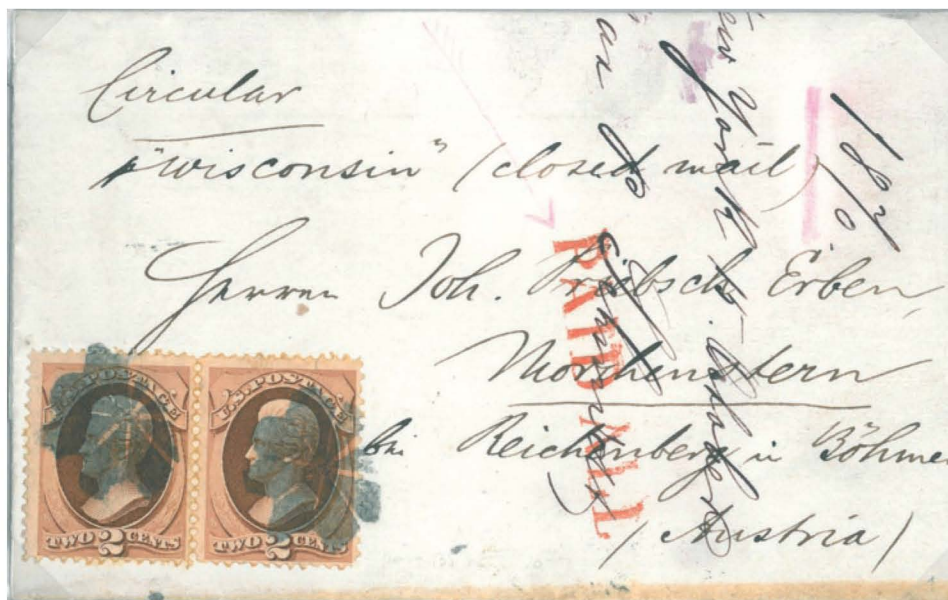 Circular
"Wisconsin" (closed mail)
Herren Joh. Priebsch Erben,
Morchenstern
bei Reichenberg in Böhmen
(Austria)
PAID ALL
1870
New York
U.S. POSTAGE
TWO 2 CENTS
U.S. POSTAGE
TWO 2 CENTS